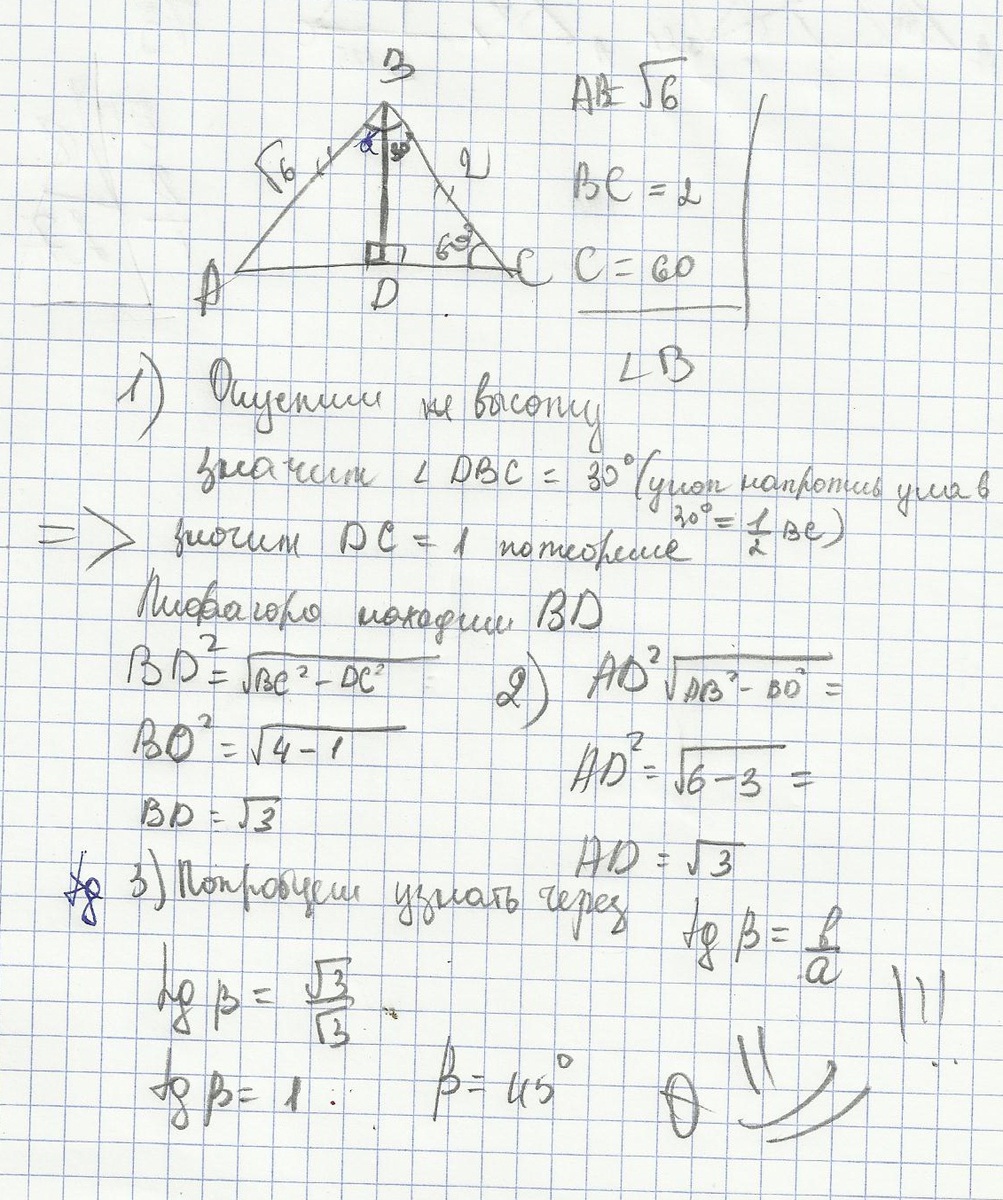 B
AB=√6
√6
α
30°
2
BC = 2
60°
C = 60
A
D
C
∠B
1) Опустим высоту
значит ∠ DBC = 30° (угол напротив угла в
30° = 1/2 BC)
=> значит DC = 1 по теореме
Пифагора находим BD
BD² = √BC² - DC²
2) AD² √AB² - BD² =
BD² = √4 - 1
AD² = √6 - 3 =
BD = √3
AD = √3
tg 3) Попробуем узнать через
tg β = b/a
tg β = √3/√3
tg β = 1
β = 45°